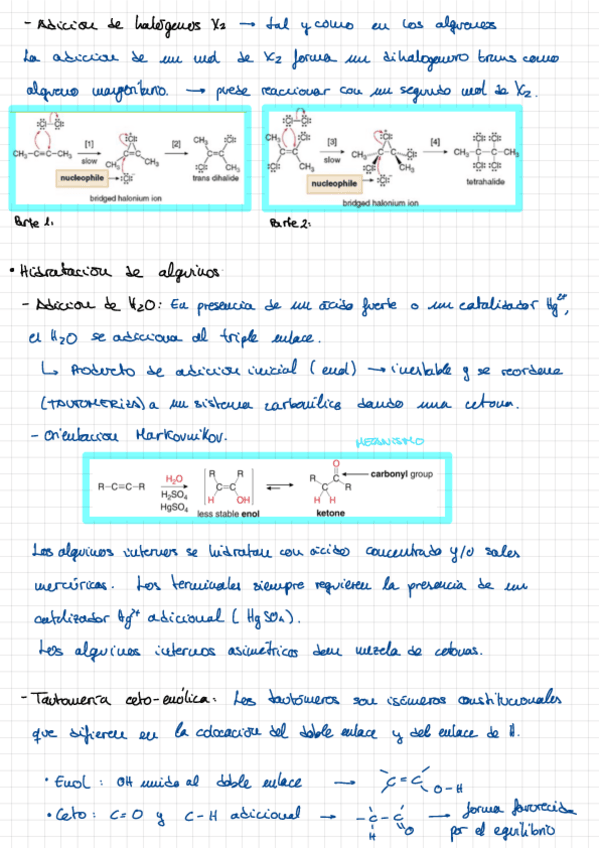 - Adicion de halógenos X2 → tal y como en los alquenos
La adicion de un mol de X2 forma un dihalogenuro trans como
alqueno mayoritario. → puede reaccionar con un segundo mol de X2.
[1] slow [2]
CH3-C≡C-CH3
nucleophile
bridged halonium ion
trans dihalide
[3] slow [4]
nucleophile
bridged halonium ion
tetrahalide
Parte 1: Parte 2:
• Hidratacion de alquinos
- Adicion de H2O: En presencia de un ácido fuerte o un catalizador Hg2+,
el H2O se adiciona al triple enlace.
↳ Producto de adicion inicial (enol) → inestable y se reordena
(TAUTOMERIZA) a un sistema carbonilico dando una cetona.
- Orientacion Markovnikov.
MECANISMO
R-C≡C-R H2O H2SO4 HgSO4
R R C=C H OH
less stable enol
O R C C R H H
carbonyl group
ketone
Los alquinos internos se hidratan con ácido concentrado y/o sales
mercúricas. Los terminales siempre requieren la presencia de un
catalizador Hg2+ adicional (HgSO4).
Los alquinos internos asimétricos dan mezcla de cetonas.
- Tautomería ceto-enólica: Los tautómeros son isómeros constitucionales
que difieren en la colocación del doble enlace y del enlace de H.
• Enol: OH unido al doble enlace → C=C O-H
• Ceto: C=O y C-H adicional → -C-C H O → forma favorecida
por el equilibrio